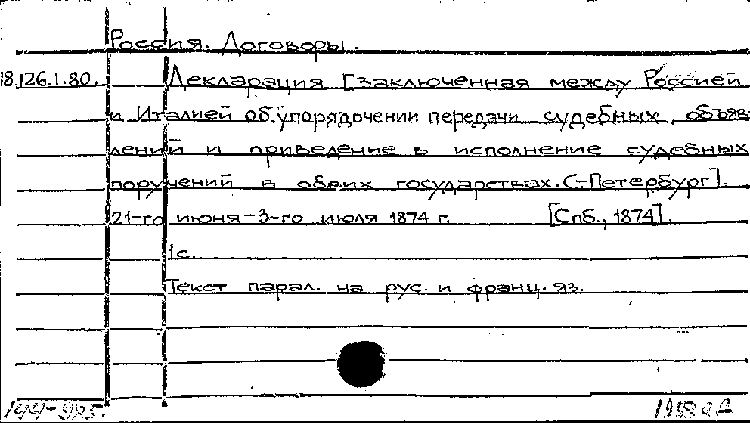 Россия. Договоры.
18.126.1.80. Декларация [заключенная между Россией
и Италией об упорядочении передачи судебных объяв
лений и приведение в исполнение судебных
поручений в обеих государствах. С-Петербург].
21-го июня-3-го июля 1874 г. [Спб., 1874].
1с.
Текст парал. на рус. и франц. яз.
144-985.